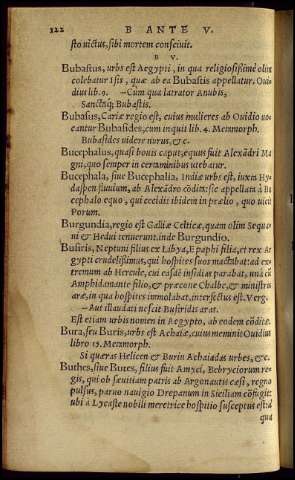 122 B ANTE V.
sto uictus, sibi mortem consciuit.
B V.
Bubastus, urbs est Aegypti, in qua religiosissimè olim
colebatur Isis, quæ ab ea Bubastis appellatur. Oui
dius lib. 9. — Cum qua latrator Anubis,
Sanctaq; Bubastis.
Bubasus, Cariæ regio est, cuius mulieres ab Ouidio uo
cantur Bubasides, cum inquit lib. 4. Metamorph.
Bubasides uidere nurus, &c.
Bucephalus, quasi bouis caput, equus fuit Alexādri Ma
gni, quo semper in certaminibus utebatur.
Bucephala, siue Bucephalia, Indiæ urbs est, iuxta Hy
daspen fluuium, ab Alexādro cōdita: sic appellata à Bu
cephalo equo, qui occidit ibidem in prælio, quo uicit
Porum.
Burgundia, regio est Galliæ Celticæ, quam olim Sequa
ni & Hedui tenuerunt. inde Burgundio.
Busiris, Neptuni filius ex Libya, Epaphi filia, et rex Ae
gypti crudelissimus, qui hospites suos mactabat: ad ex
tremum ab Hercule, cui easdē insidias parabat, unà cū
Amphidamante filio, & præcone Chalbe, & ministris
aræ, in qua hospites immolabat, interfectus est. Verg.
— Aut illaudati nescit Busiridis aras.
Est etiam urbis nomen in Aegypto, ab eodem cōditæ.
Bura, seu Buris, urbs est Achaiæ, cuius meminit Ouidius
libro 15. Metamorph.
Si quæras Helicen & Burin Achaiadas urbes, &c.
Buthes, siue Butes, filius fuit Amyci, Bebryciorum re-
gis, qui ob sæuitiam patris ab Argonautis cæsi, regno
pulsus, paruo nauigio Drepanum in Siciliam cōfugit:
ubi à Lycaste nobili meretrice hospitio susceptus est: à
qua